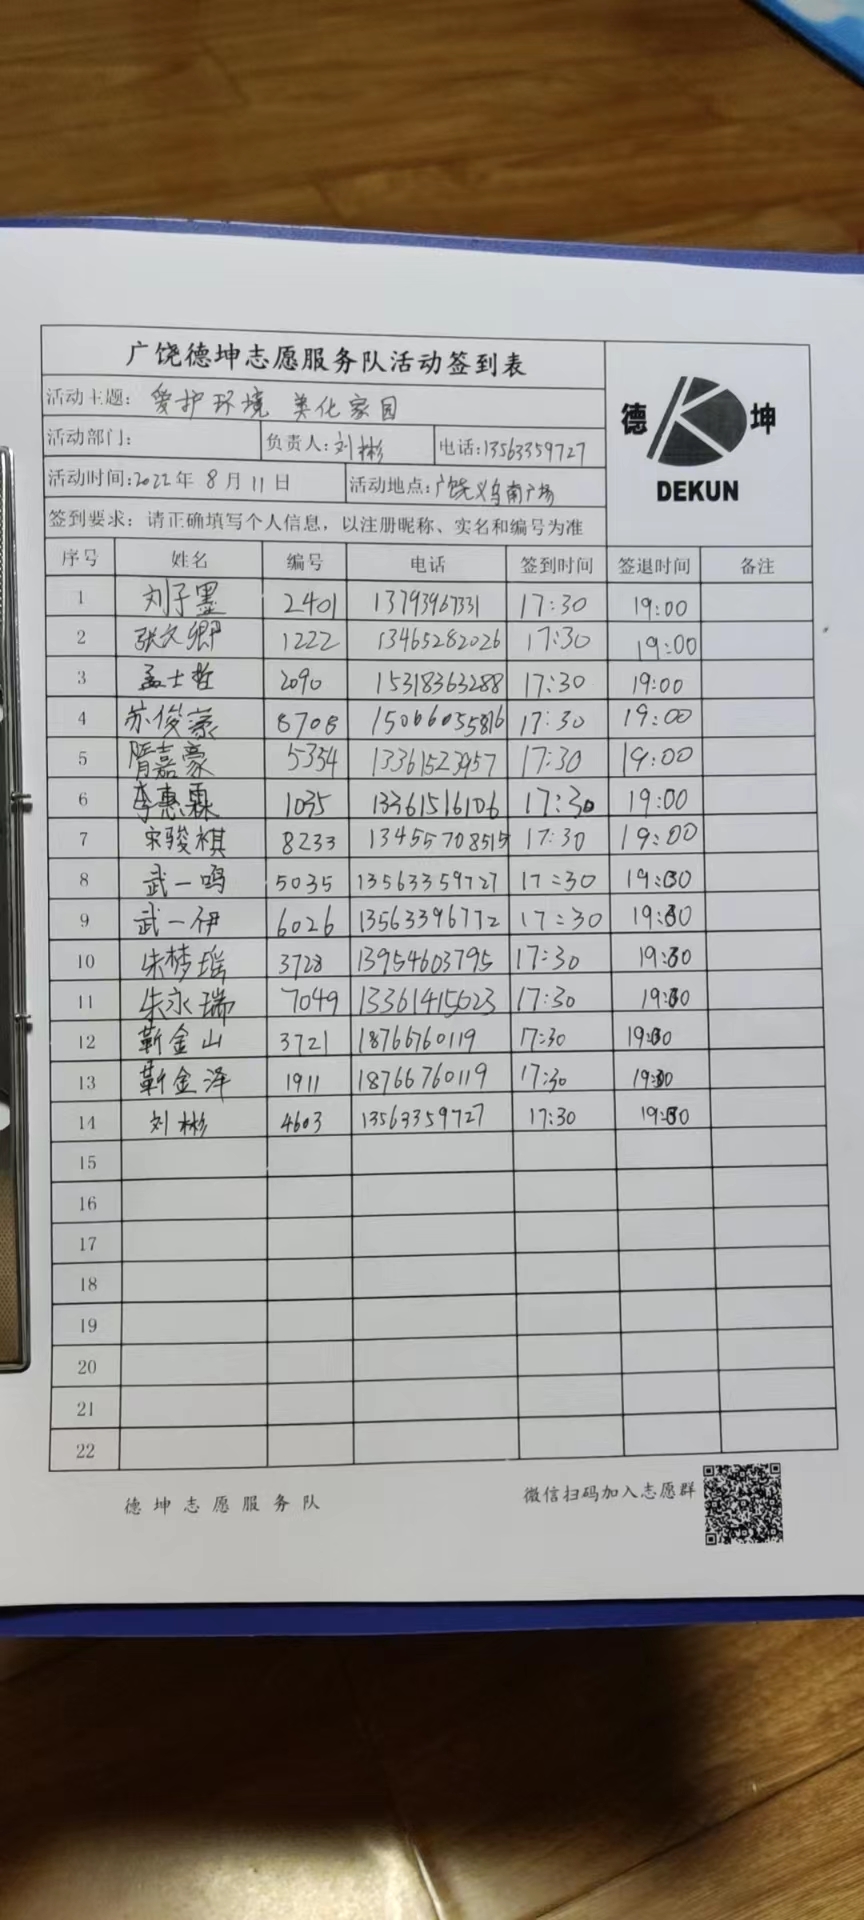 广饶德坤志愿服务队活动签到表
德 坤
DEKUN
活动主题: 爱护环境 美化家园
活动部门: 负责人: 刘彬 电话: 13563359727
活动时间: 2022年 8月11日 活动地点: 广饶义乌南广场
签到要求: 请正确填写个人信息, 以注册昵称、实名和编号为准
序号 姓名 编号 电话 签到时间 签退时间 备注
1 刘子墨 2401 13793967331 17:30 19:00
2 张文卿 1222 13465282026 17:30 19:00
3 孟士哲 2090 15318363288 17:30 19:00
4 苏俊豪 8708 15066055816 17:30 19:00
5 隋嘉豪 5354 13361523957 17:30 19:00
6 李惠霖 1035 13361516106 17:30 19:00
7 宋骏祺 8233 13455708515 17:30 19:00
8 武一鸣 5035 13563359727 17:30 19:00
9 武一伊 6026 13563396772 17:30 19:00
10 朱梦瑶 3728 13954603795 17:30 19:00
11 朱永瑞 7049 13361415623 17:30 19:00
12 靳金山 3721 18766760119 17:30 19:00
13 靳金泽 1911 18766760119 17:30 19:00
14 刘彬 4603 13563359727 17:30 19:00
15
16
17
18
19
20
21
22
德坤志愿服务队 微信扫码加入志愿群